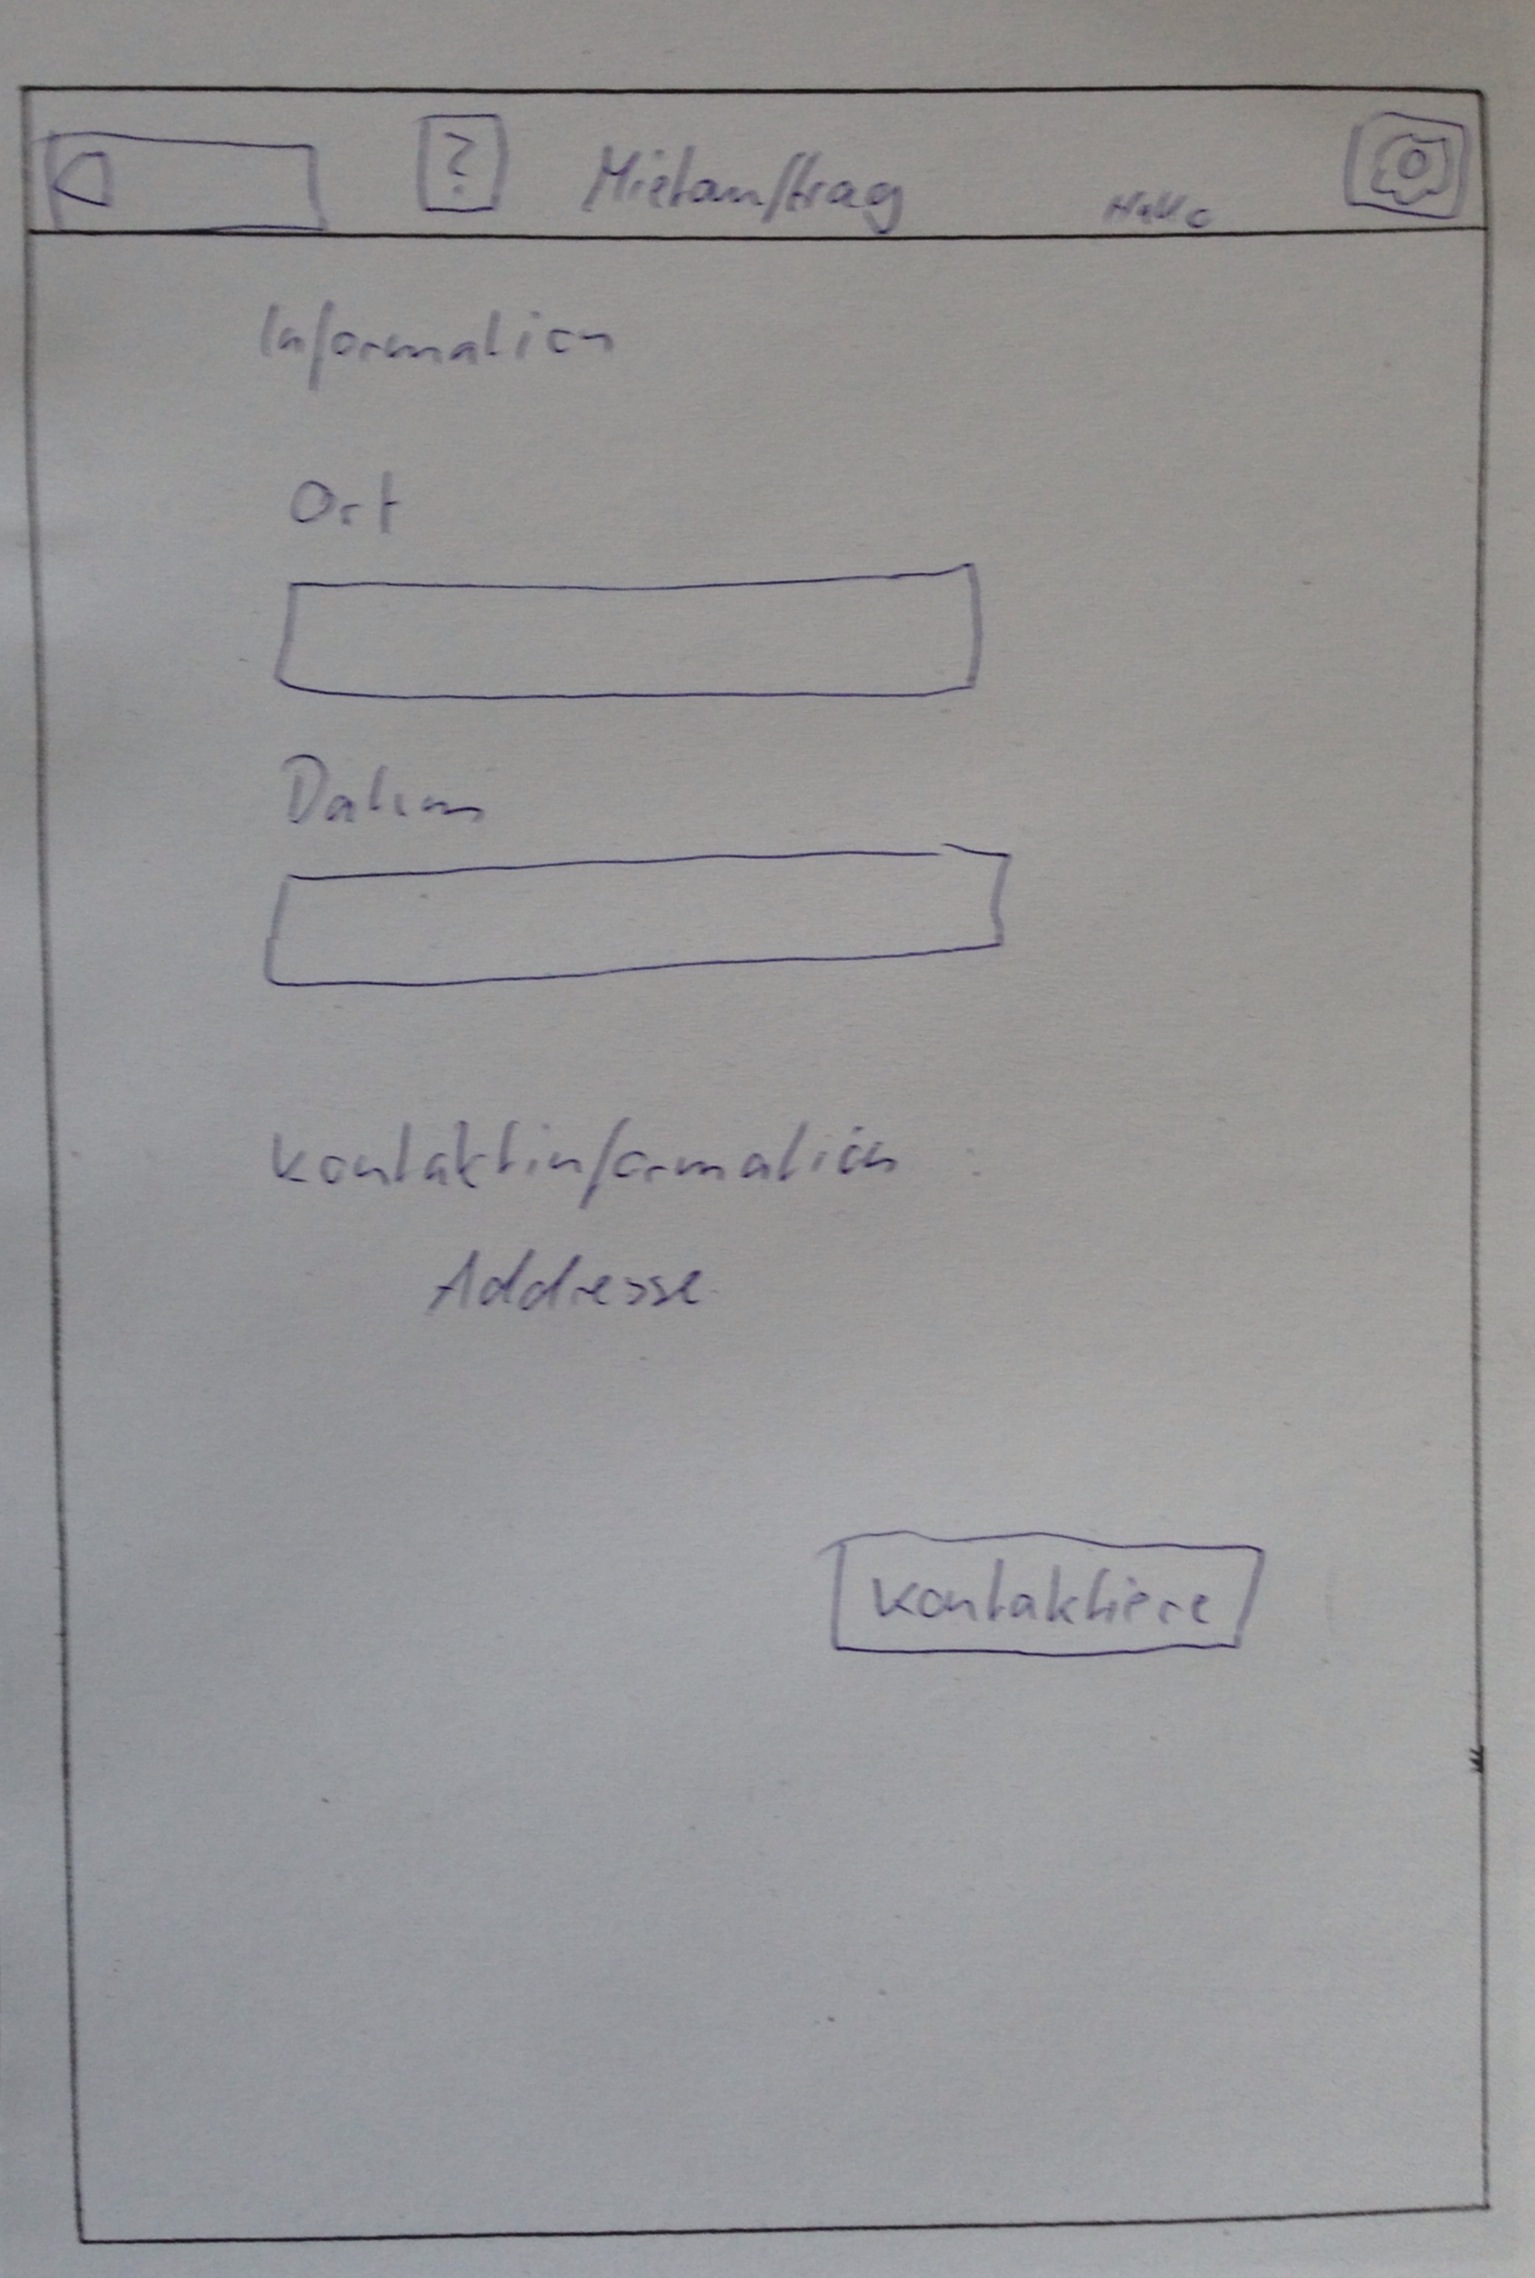 ? Mietauftrag Hallo
Information
Ort
Datum
Kontaktinformation :
Addresse
Kontaktiere